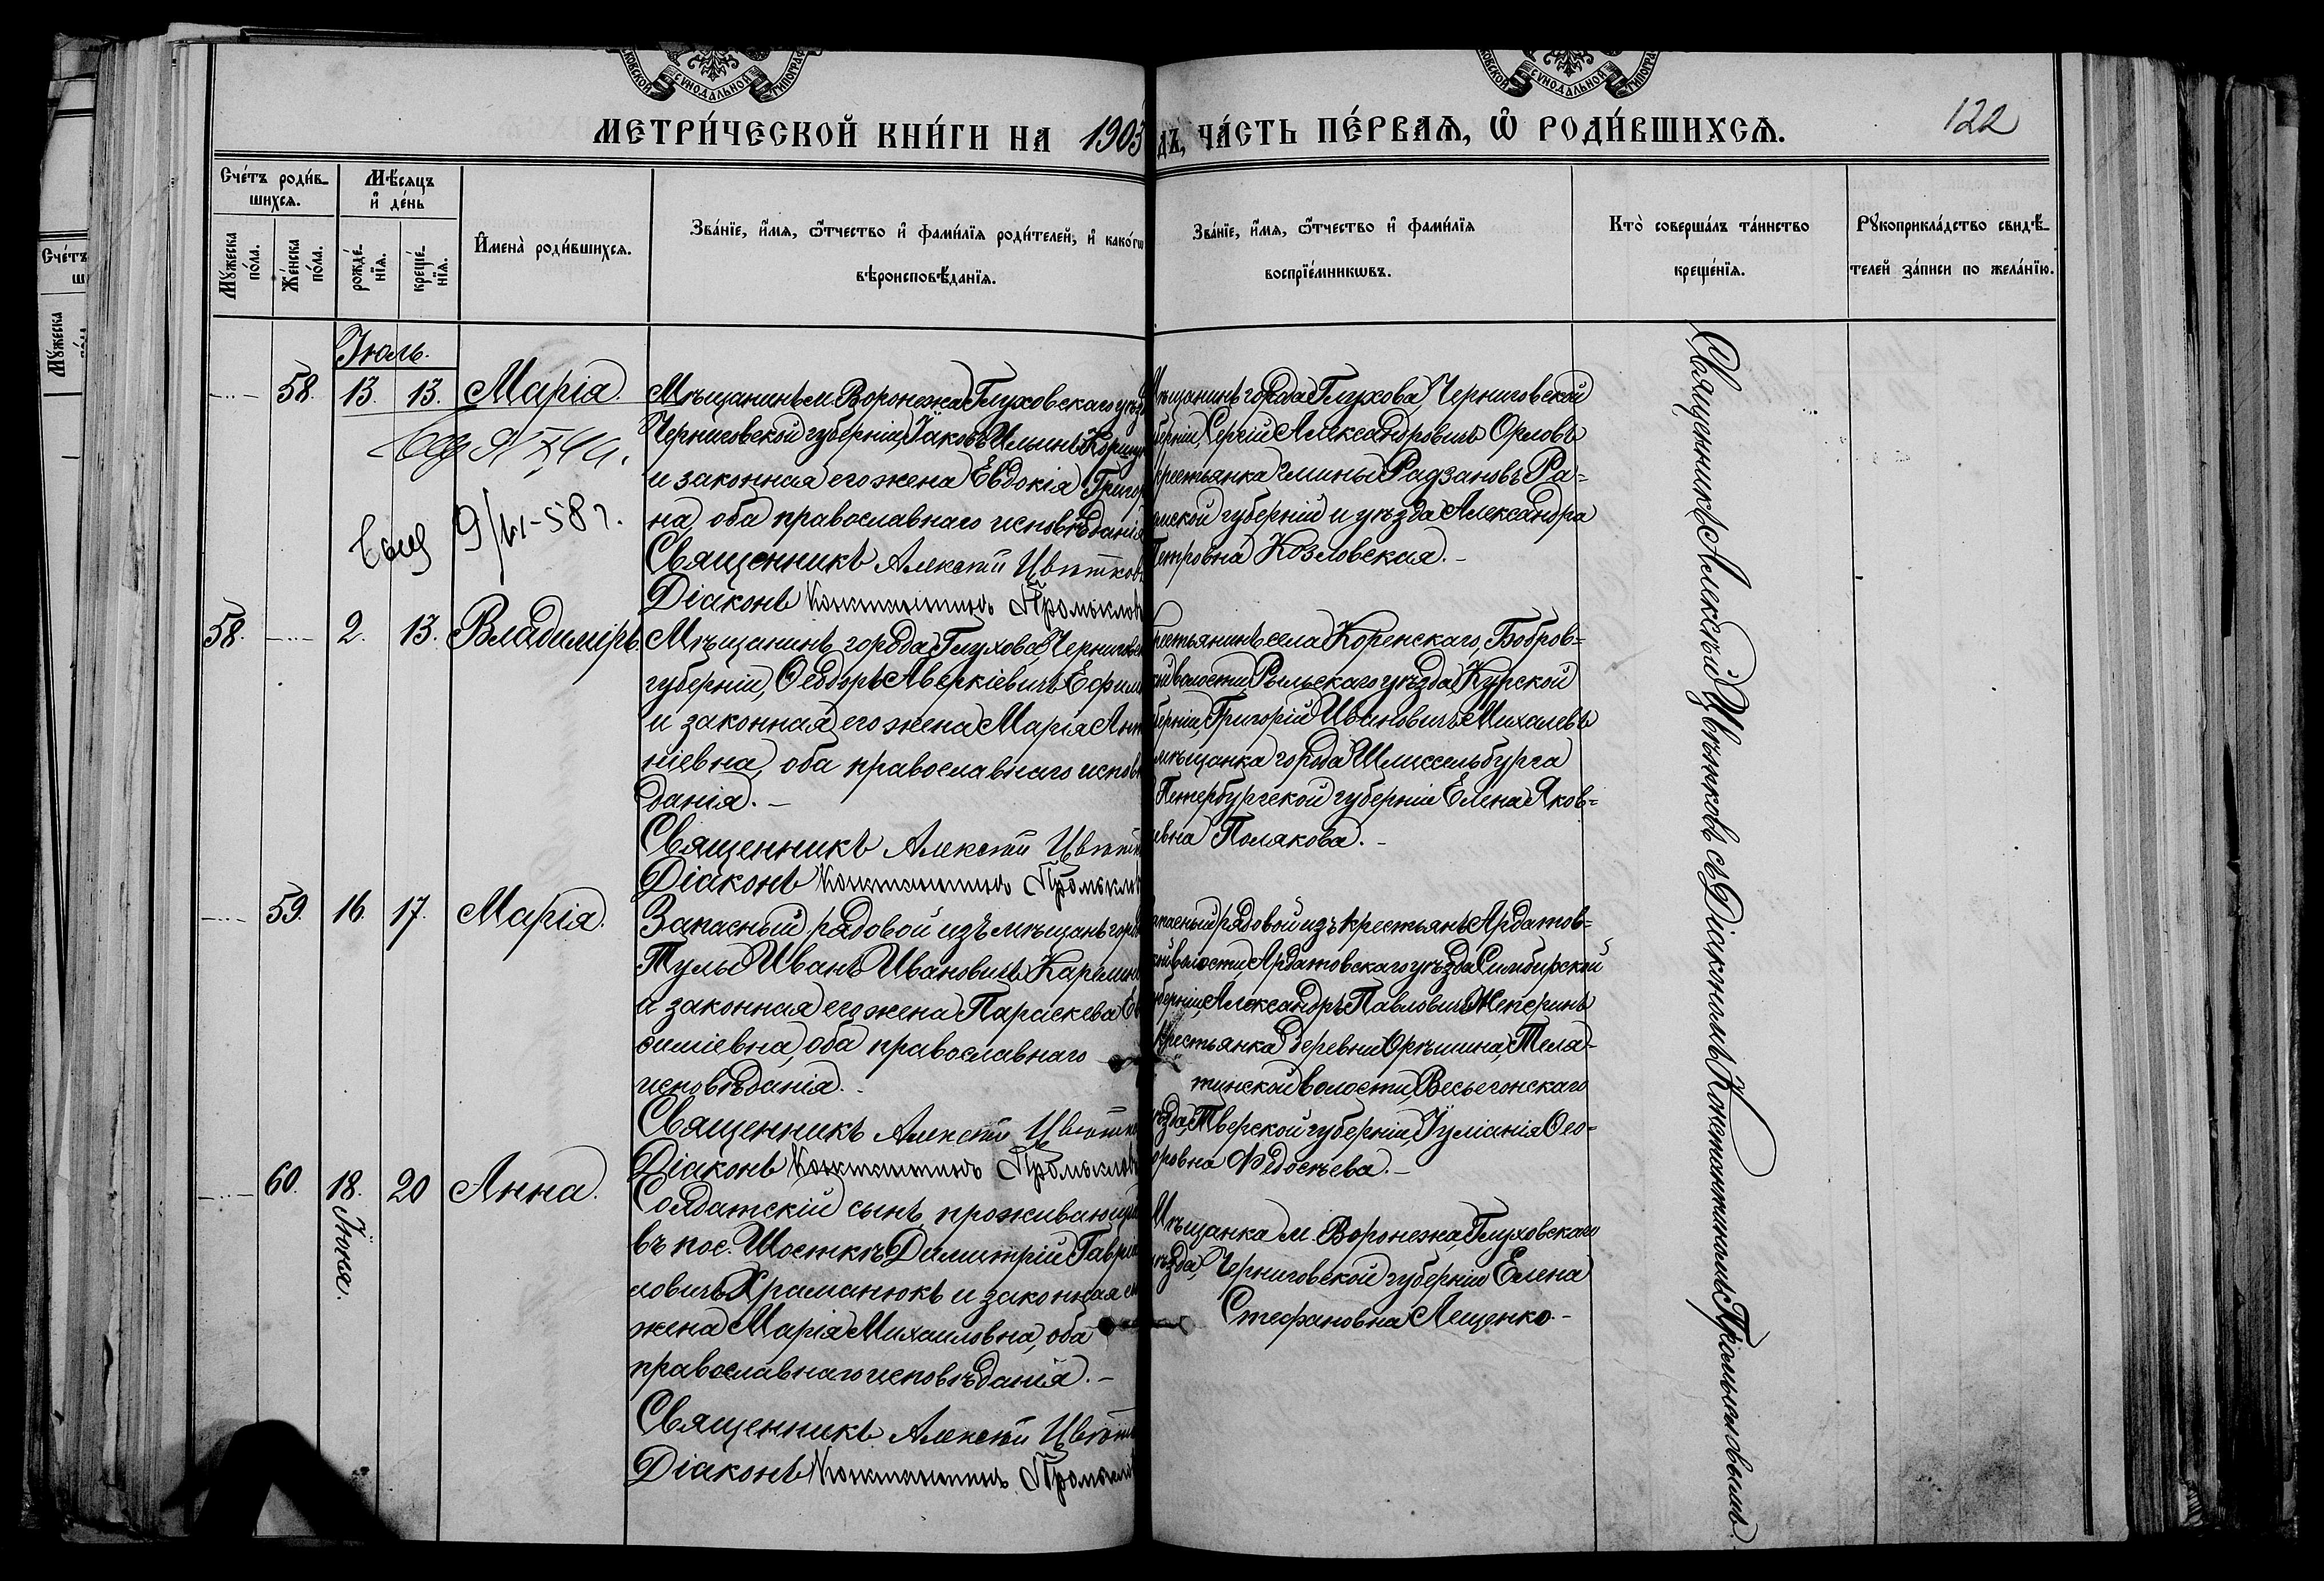 МЕТРИ́ЧЕСКОЙ КНИ́ГИ НА 1903
дъ, ЧА́СТЬ ПЕ́РВАѦ, Ѽ РОДИ́ВШИХСѦ.
122
Сче́тъ роди́в-
шихсѧ.
Мѣ́сѧцъ
и҆ де́нь
Мꙋ́жеска
по́ла.
Же́нска
по́ла.
рожде́-
нїѧ.
креще́-
нїѧ.
И҆мена̀ роди́вшихсѧ.
Зва́нїе, и҆́мѧ, ѻ҆́тчество и҆ фами́лїѧ роди́телей, и҆ како́гѡ
вѣроисповѣ́данїѧ.
Зва́нїе, и҆́мѧ, ѻ҆́тчество и҆ фами́лїѧ
воспрїе́мникѡвъ.
Кто̀ соверша́лъ та́инство
креще́нїѧ.
Рꙋкоприкла́дство свидѣ́-
телей за́писи по жела́нїю.
Іюль.
58. 13. 13. Марія.
Мѣщанинъ м. Воронежа Глуховскаго уѣз
Черниговской губерніи, Іаковъ Ильинъ
и законная его жена Евдокія Григор
на, оба православнаго исповѣданія
Священникъ Алексѣй Цвѣтков
Діаконъ Константинъ Промыслов
ѣщанинъ города Глухова, Черниговской
берніи, Сергій Александровичъ Орловъ
рестьянка гмины Радзановъ Ра-
омской губерніи и уѣзда Александра
Петровна Козловская.-
9/VI-58 г.
58. 2. 13. Владиміръ.
Мѣщанинъ города Глухова, Черниговск
губерніи, Ѳеодоръ Аверкіевичъ Ефим
и законная его жена Марія Ант
ніевна, оба православнаго исповѣ
данія.-
Священникъ Алексѣй Цвѣтк
Діаконъ Константинъ Промыслов
рестьянинъ села Коренскаго, Бобров-
кой волости, Рыльскаго уѣзда, Курской
берніи, Григорій Ивановичъ Михалевъ
мѣщанка города Шлиссельбурга
Петербургской губерніи Елена Яков-
евна Полякова.-
59. 16. 17. Марія.
Запасный рядовой изъ мѣщанъ горо
Тулы Иванъ Ивановичъ
и законная его жена Параскева Ев
симіевна, оба православнаго
исповѣданія.-
Священникъ Алексѣй Цвѣтко
Діаконъ Константинъ Промыслов
апасный рядовой изъ крестьянъ Ардатов-
кой волости, Ардатовскаго уѣзда Симбирской
уберніи, Александръ Павловичъ
Крестьянка деревни Орѣшина, Теля-
тинской волости, Весьегонскаго
ѣзда, Тверской губерніи, Іуліанія Ѳео-
оровна Ѳедосѣева.-
60. 18. 20 Анна.
Іюня.
Солдатскій сынъ, проживающій
въ пос. Шосткѣ Димитрій Гаврии
ловичъ Храманюкъ и законная ег
жена Марія Михаиловна, оба
православнаго исповѣданія.-
Священникъ Алексѣй Цвѣтк
Діаконъ Константинъ Промысло
Мѣщанка м. Воронежа, Глуховскаго
уѣзда, Черниговской губерніи Елена
Стефановна Лещенко.-
Священникъ Алексѣй Цвѣтковъ съ Діакономъ Константиномъ Промысловымъ